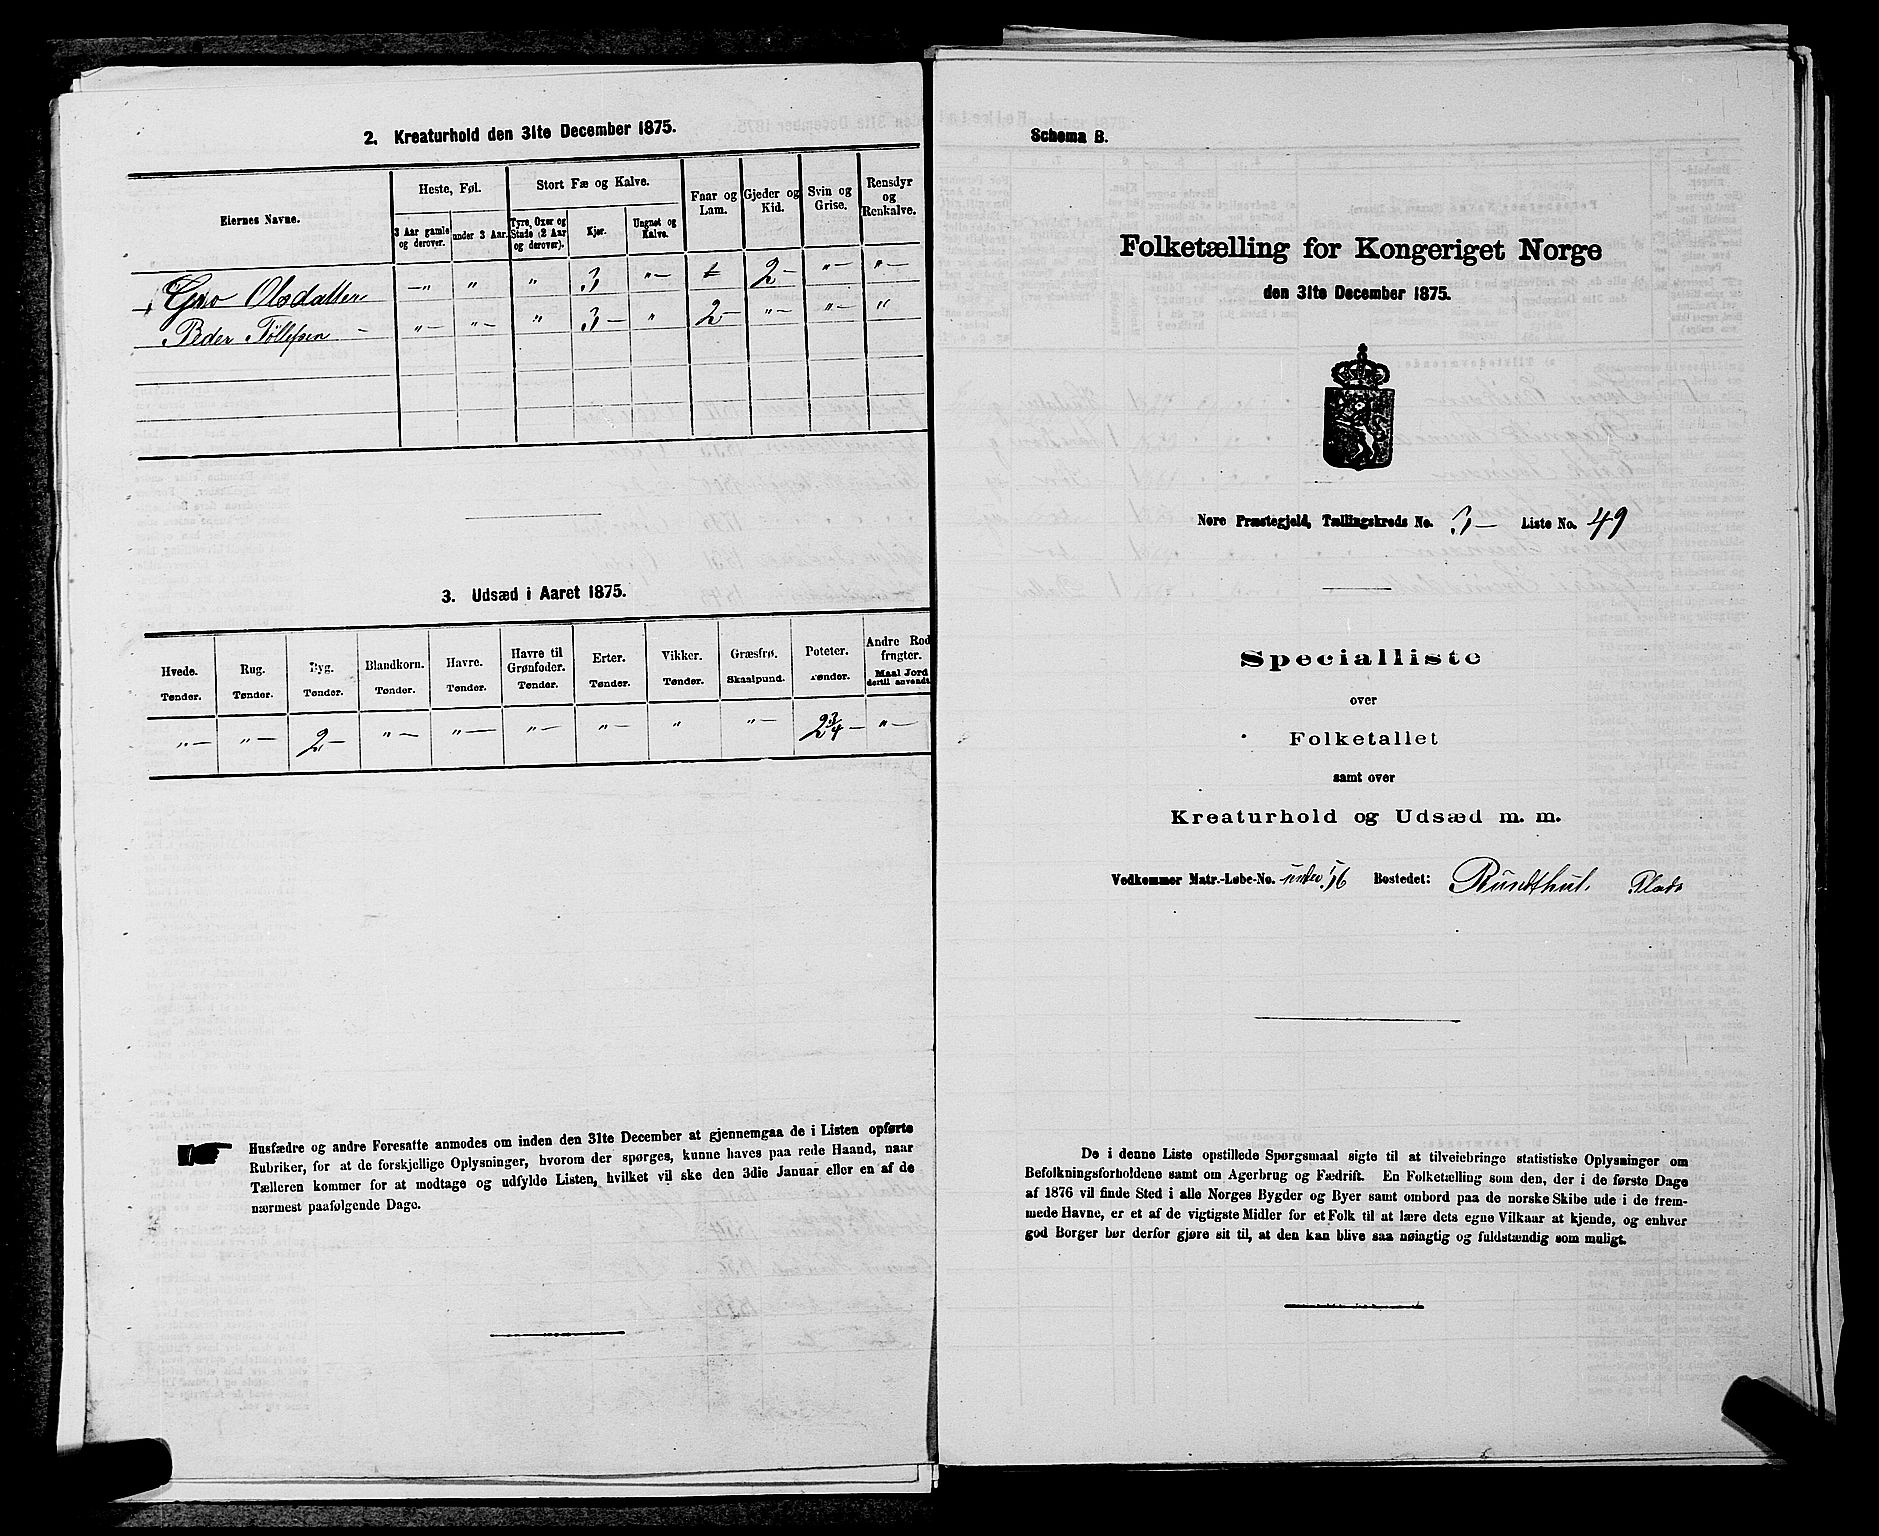 2. Kreaturhold den 31te December 1875.
Eiernes Navne.
Heste, Føl.
Stort Fæ og Kalve.
Faar og Lam.
Gjeder og Kid.
Svin og Grise.
Rensdyr og Renkalve.
3 Aar gamle og derover.
under 3 Aar.
Tyre, Oxer og Stude (2 Aar og derover).
Kjør.
Ungnøt og Kalve.
Gro Olsdatter — " " " 3 "— 2 — "— "—
Peder Tollefsen — "— "— " 3 — " 2 — "— "— "
3. Udsæd i Aaret 1875.
Hvede. Tønder.
Rug. Tønder.
Byg. Tønder.
Blandkorn. Tønder.
Havre. Tønder.
Havre til Grønfoder. Tønder.
Erter. Tønder.
Vikker. Tønder.
Græsfrø. Skaalpund.
Poteter. Tønder.
Andre Rodfrugter. Maal Jord dertil anvendt.
"— "— 2 — "— "— "— "— " "— 2 3/4 — "—
Husfædre og andre Foresatte anmodes om inden den 31te December at gjennemgaa de i Listen opførte
Rubriker, for at de forskjellige Oplysninger, hvorom der spørges, kunne haves paa rede Haand, naar
Tælleren kommer for at modtage og udfylde Listen, hvilket vil ske den 3die Januar eller en af de
nærmest paafølgende Dage.
Schema B.
Folketælling for Kongeriget Norge
den 31te December 1875.
Nore Præstegjeld, Tællingskreds No. 3 — Liste No. 49
Specialliste
over
Folketallet
samt over
Kreaturhold og Udsæd m. m.
Vedkommer Matr.-Løbe-No. under 56 Bostedet: Rundthul. Plads
De i denne Liste opstillede Spørgsmaal sigte til at tilveiebringe statistiske Oplysninger om
Befolkningsforholdene samt om Agerbrug og Fædrift. En Folketælling som den, der i de første Dage
af 1876 vil finde Sted i alle Norges Bygder og Byer samt ombord paa de norske Skibe ude i de frem-
mede Havne, er et af de vigtigste Midler for et Folk til at lære dets egne Vilkaar at kjende, og enhver
god Borger bør derfor gjøre sit til, at den kan blive saa nøiagtig og fuldstændig som muligt.